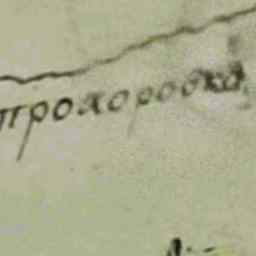 прохоровка